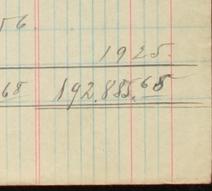 56.
1925.
68 192.885.68